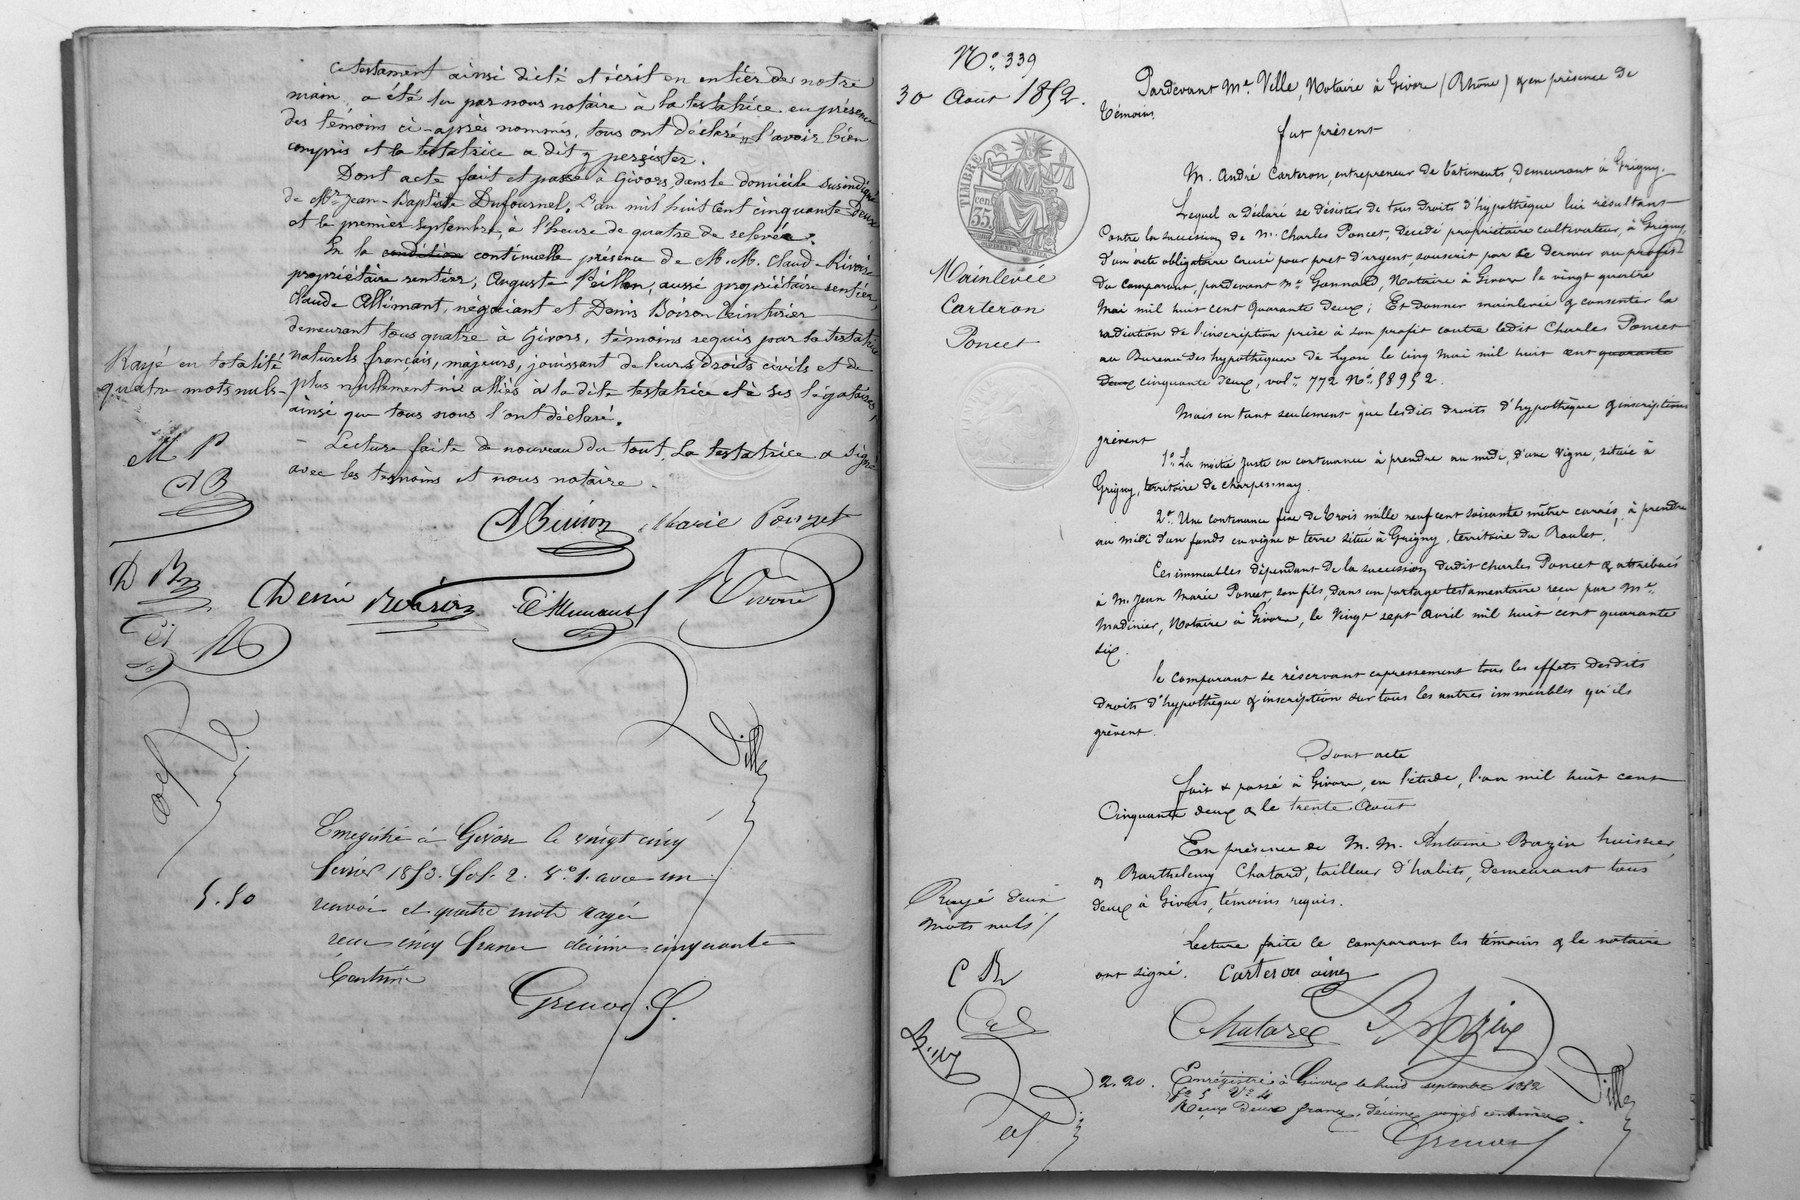 ce testament ainsi dicté et écrit en entier de notre
main, a été lu par nous notaire à la testatrice en présence
des témoins ci-après nommés, tous ont déclaré l'avoir bien
compris et la testatrice a dit y persister.
Dont acte fait et passé à Givors, dans le domicile susindiqué
de Mr Jean-Baptiste Dufournel, l'an mil huit cent cinquante deux
et le premier septembre, à l'heure de quatre de relevée.
En la condition continuelle présence de M.M. Claude Rivoire
propriétaire rentier, Auguste Peillon, aussi propriétaire rentier,
Claude Allimant, négociant et Denis Boiron teinturier
demeurant tous quatre à Givors, témoins requis par la testatrice
naturels français, majeurs, jouissant de leurs droits civils et de
plus nullement ni alliés à la dite testatrice et à ses légataires,
ainsi que tous nous l'ont déclaré.
Lecture faite de nouveau du tout, la testatrice a signé
avec les témoins et nous notaire.
Rayé en totalité
quatre mots nuls
M P
A B
Marie
D B
Denis Boiron
Allimant
Rivoire
Ville
Enregistré à Givors le vingt cinq
février 1853. fol. 2. Vo 1. avec un
renvoi et quatre mots rayés
reçu cinq francs décime cinquante
centimes
5.50
No 339
30 Août 1852.
TIMBRE
35 cen
Mainlevée
Carteron
Poncet
Pardevant Me Ville, Notaire à Givors (Rhône) & en présence de
témoins
fut présent
M. André Carteron, entrepreneur de bâtiments, demeurant à Grigny.
Lequel a déclaré se désister de tous droits d'hypothèque lui résultant
Contre la succession de Mr Charles Poncet, décédé propriétaire cultivateur, à Grigny,
d'un acte obligatoire causé pour prêt d'argent, souscrit par ce dernier au profit
du comparant, pardevant Me Gannard, Notaire à Givors le vingt quatre
Mai mil huit cent quarante deux; Et donner mainlevée & consentir la
radiation de l'inscription prise à son profit contre ledit Charles Poncet
au Bureau des hypothèques de Lyon le cinq mai mil huit cent quarante
Deux cinquante deux, vol. 772 No 58952.
Mais en tant seulement que lesdits droits d'hypothèque & inscriptions
grèvent
1o La moitié juste en contenance à prendre au midi, d'une vigne, située à
Grigny, territoire de
2o Une contenance fixe de trois mille neuf cent soixante mètres carrés, à prendre
au midi d'un fonds en vigne & terre situé à Grigny, territoire du
Ces immeubles dépendant de la succession dudit Charles Poncet & attribués
à M. Jean Marie Poncet son fils, dans un partage testamentaire reçu par Me
Madinier, Notaire à Givors, le vingt sept avril mil huit cent quarante
six.
le comparant se réservant expressement tous les effets desdits
droits d'hypothèque & inscription sur tous les autres immeubles qu'ils
grèvent.
Dont acte
fait & passé à Givors, en l'étude, l'an mil huit cent
Cinquante deux & le trente Août
En présence de M.M. Antoine Bazin huissier,
& Barthelemy Chatard, tailleur d'habits, demeurant tous
deux à Givors, témoins requis.
Lecture faite le comparant les témoins & le notaire
ont signé. Carteron ainé
Rayé deux
mots nuls
Chatard Bazin
Ville
2.20. Enregistré à Givors le huit septembre 1852
fo 5 Vo 4
Reçu deux francs, décime vingt centimes.